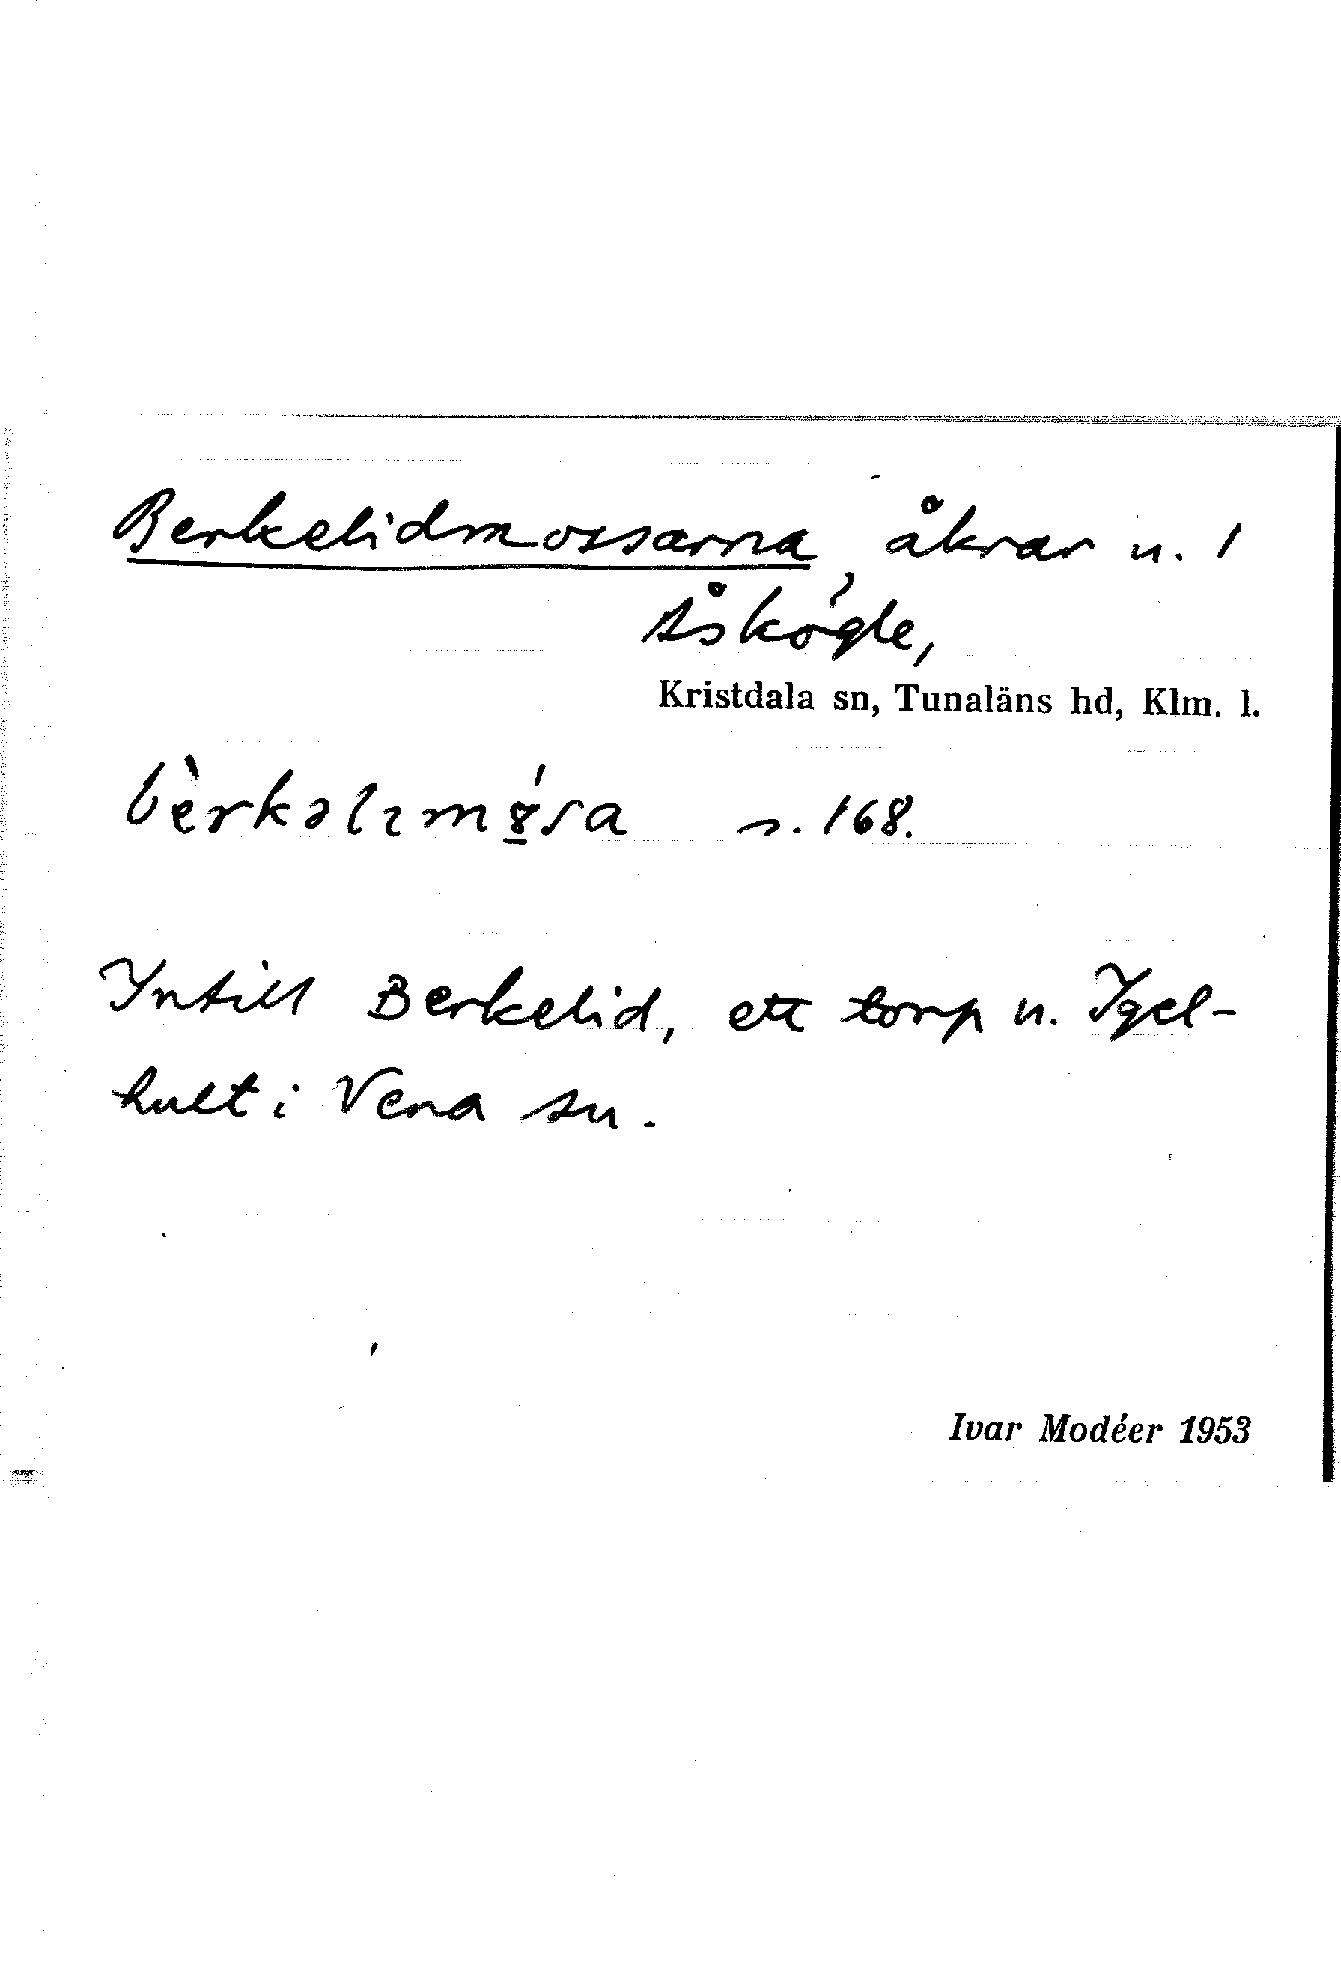 Berkelidmossarna, åkrar u. 1
Åskögle,
Kristdala sn, Tunaläns hd, Klm. l.
bèrkəlımó̱sa s. 168.
Intill Berkelid, ett torp u. Igel-
hult i Vena sn.
Ivar Modéer 1953